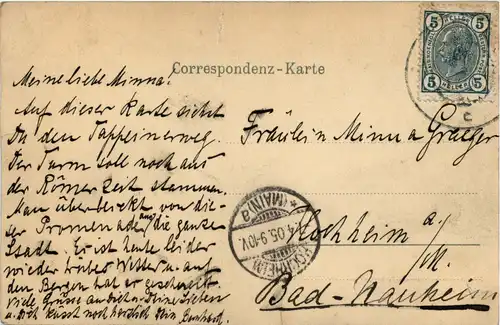 Correspondenz-Karte
Meine liebe Minna!
Auf dieser Karte siehst
Du den Tappeinerweg.
Der Turm soll noch aus
der Römerzeit stammen.
Man überblickt von die-
ser Promenade aus die ganze
Stadt. Es ist heute leider
wieder trüber Wetter u. auf
den Bergen hat es geschneit.
Viele Grüsse an Dich u. Deine Lieben
u. Dich küsst noch herzlich Dein
Fräulein Minna Graeger
Hochheim a/M.
Bad-Nauheim
5 5
5 5
HOCHHEIM
(MAIN) a
4.05.9-10V.